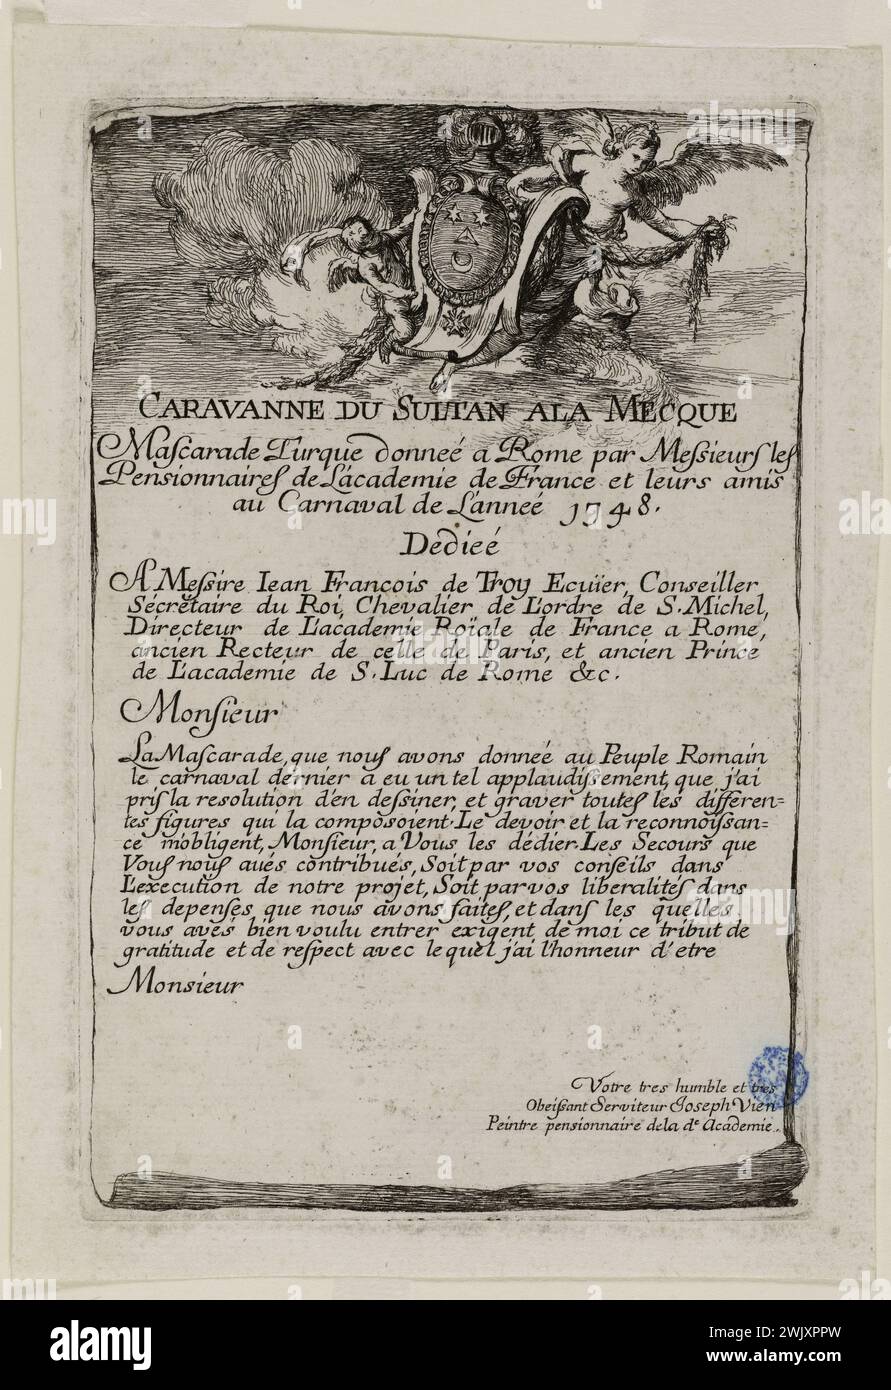 CARAVANNE DU SULTAN ALA MECQUE
Mascarade Turque donneé a Rome par Messieurs les
Pensionnaires de L'academie de France et leurs amis
au Carnaval de L'anneé 1748.
Dedieé
A Messire Iean Francois de Troy Ecuïer, Conseiller
Sécretaire du Roi, Chevalier de L'ordre de S. Michel,
Directeur de L'academie Roïale de France a Rome,
ancien Recteur de celle de Paris, et ancien Prince
de L'academie de S. Luc de Rome &c.
Monsieur
La Mascarade, que nous avons donneé au Peuple Romain
le carnaval dernier a eu un tel applaudissement, que j'ai
pris la resolution d'en dessiner, et graver toutes les differen=
tes figures qui la composoient. Le devoir et la reconnoissan=
ce m'obligent, Monsieur, a Vous les dédier. Les Secours que
Vous nous aués contribués, Soit par vos conseils dans
L'execution de notre projet, Soit par vos liberalités dans
les depenses, que nous avons faites, et dans les quelles
vous avés bien voulu entrer exigent de moi ce tribut de
gratitude et de respect avec le quel j'ai l'honneur d'etre
Monsieur
Votre tres humble et tres
Obeissant Serviteur Joseph Vien
Peintre pensionnaire de la de Academie.
alamy
alamy
Image ID: 2WJXPPW
www.alamy.com